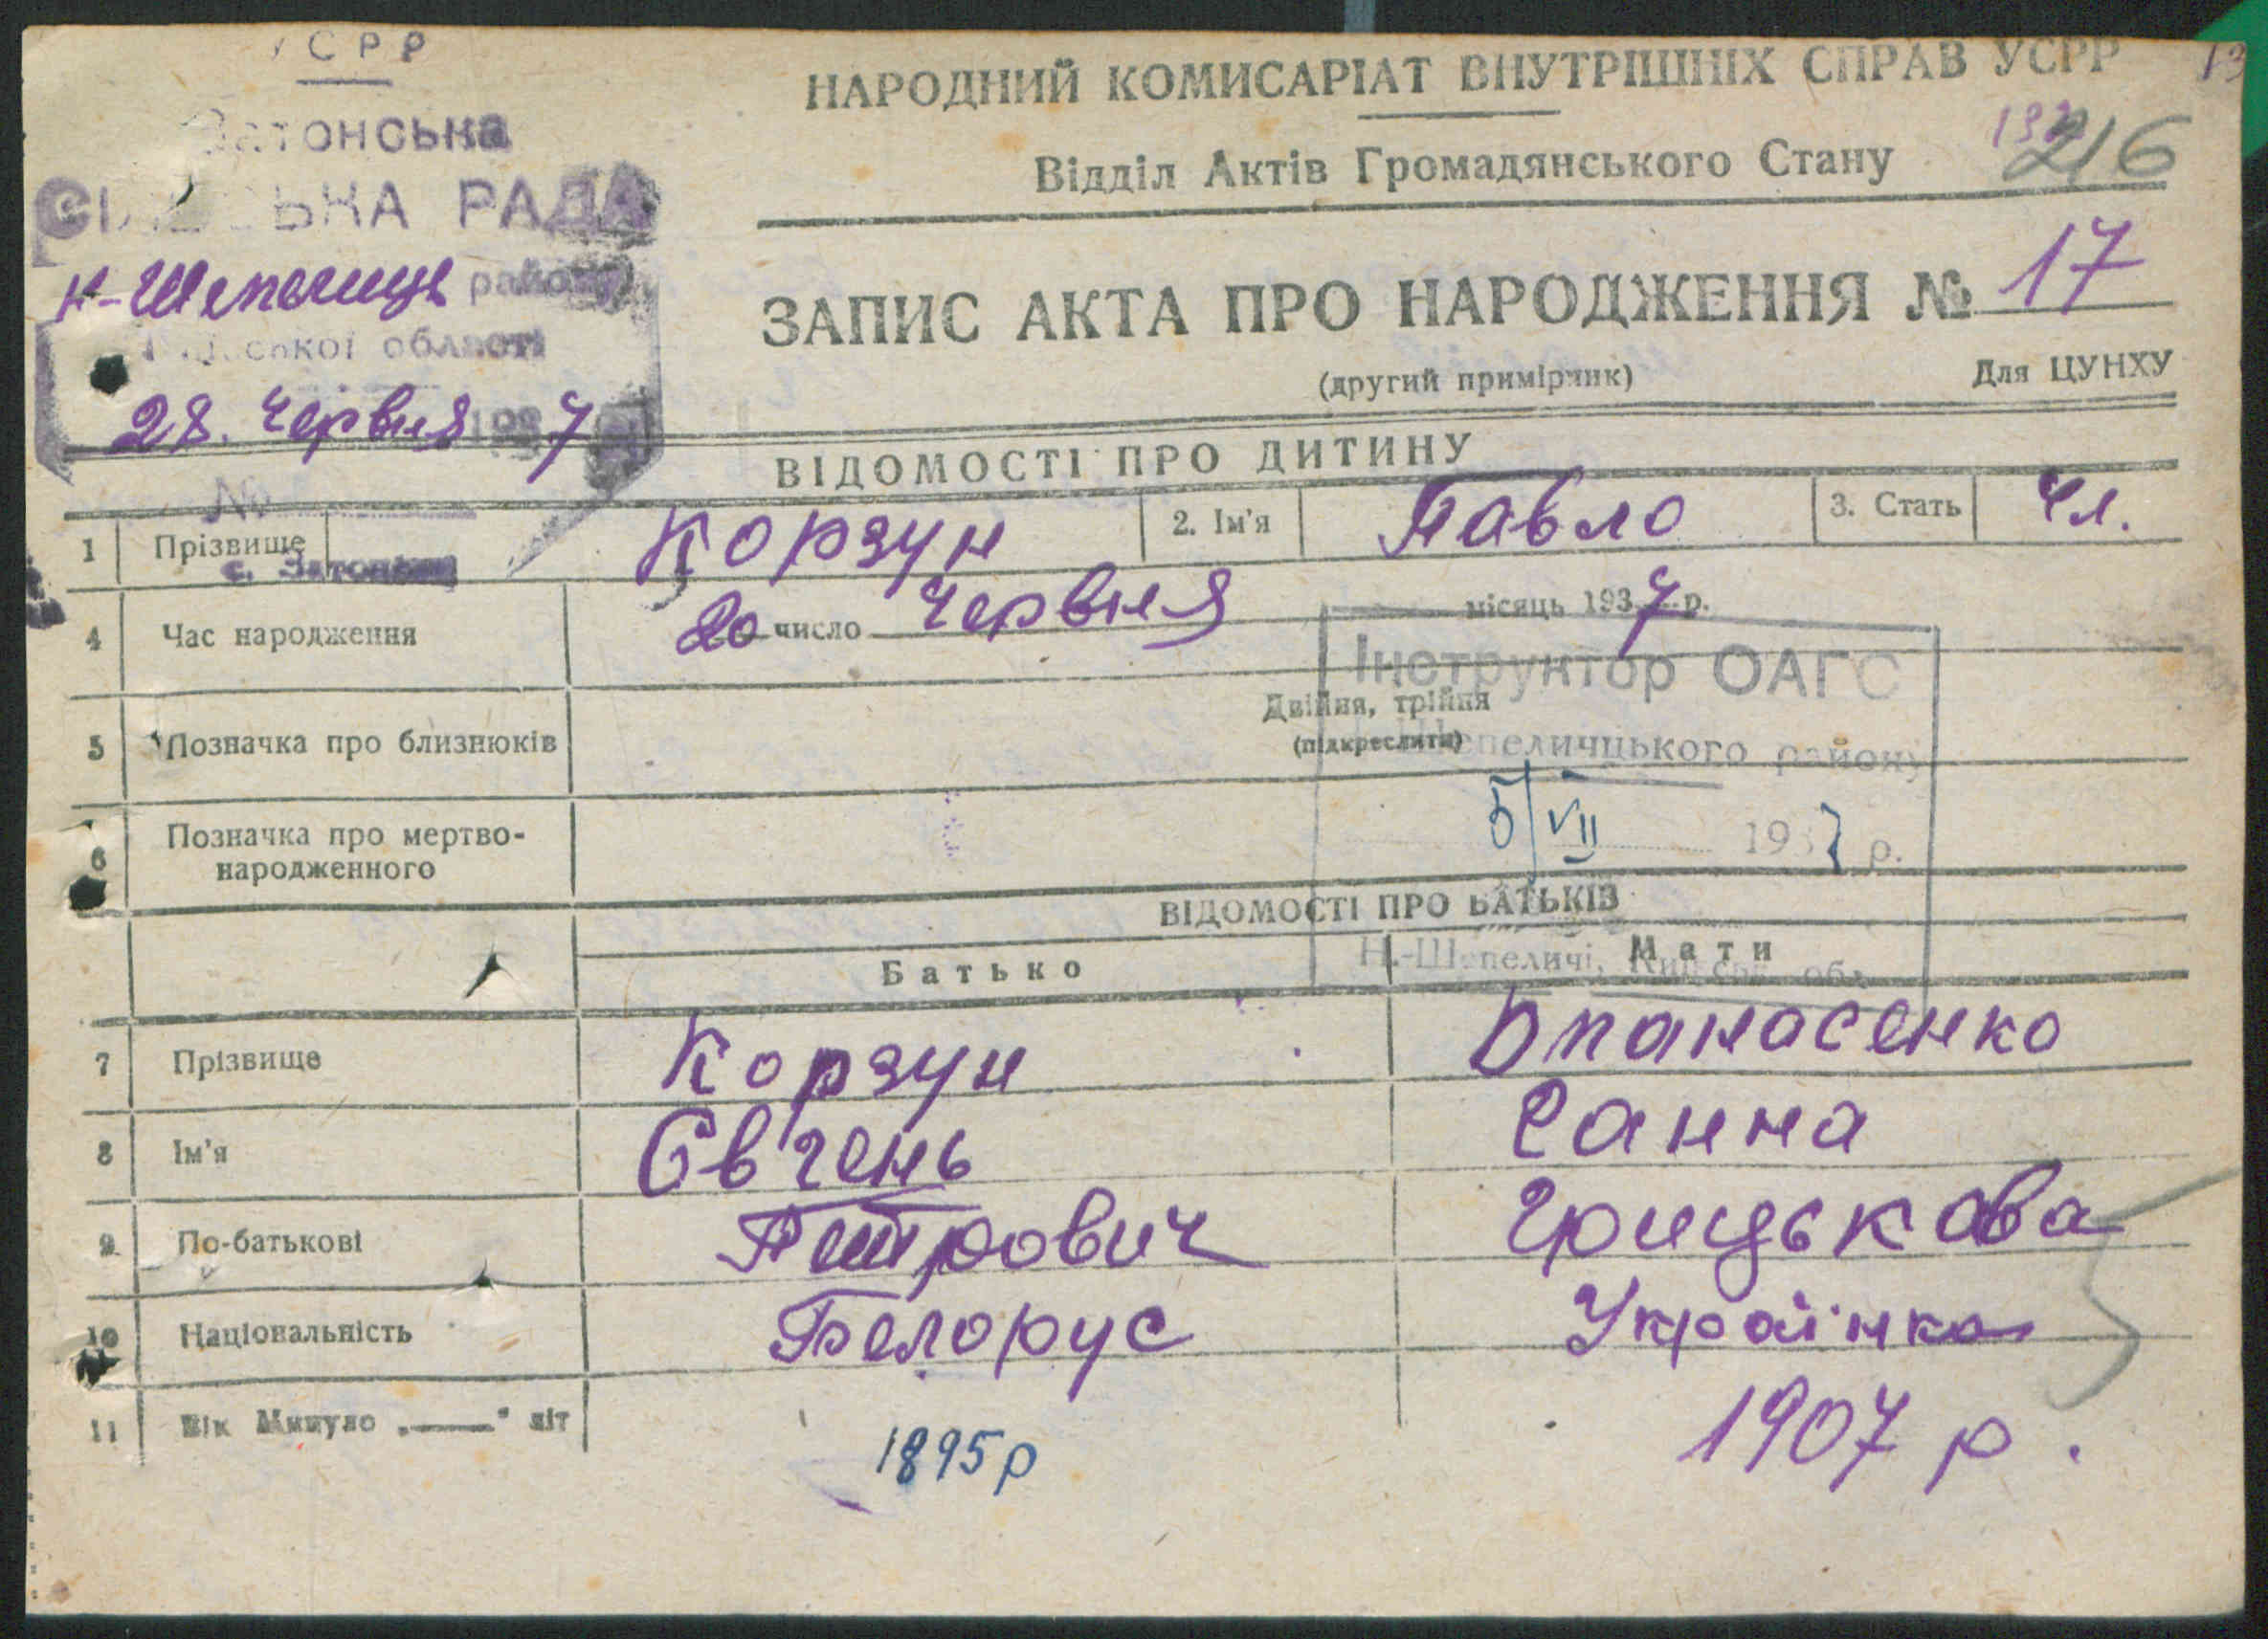 УСРР
Затонська
СІЛЬСЬКА РАДА
Н-Шепелиць району
області
28. Червня 1937
№
НАРОДНИЙ КОМИСАРІАТ ВНУТРІШНІХ СПРАВ УСРР
Відділ Актів Громадянського Стану
216
ЗАПИС АКТА ПРО НАРОДЖЕННЯ № 17
(другий примірник)
Для ЦУНХУ
ВІДОМОСТІ ПРО ДИТИНУ
1 Прізвище Корзун 2. Ім'я Павло 3. Стать Чл.
4 Час народження 20 число Червня місяць 1937 р.
Інструктор ОАГС
5 Позначка про близнюків Двійня, трійня
(підкреслити)
Шепеличцького району
6 Позначка про мертво-
народженного
5/VII 1937 р.
ВІДОМОСТІ ПРО БАТЬКІВ
Батько Мати
Н.-Шепеличі, обл.
7 Прізвище Корзун Опанасенко
8 Ім'я Євгень Ганна
9 По-батькові Петрович Грицькова
10 Національність Белорус Українка
11 Вік Минуло „——“ літ 1895р 1907 р.